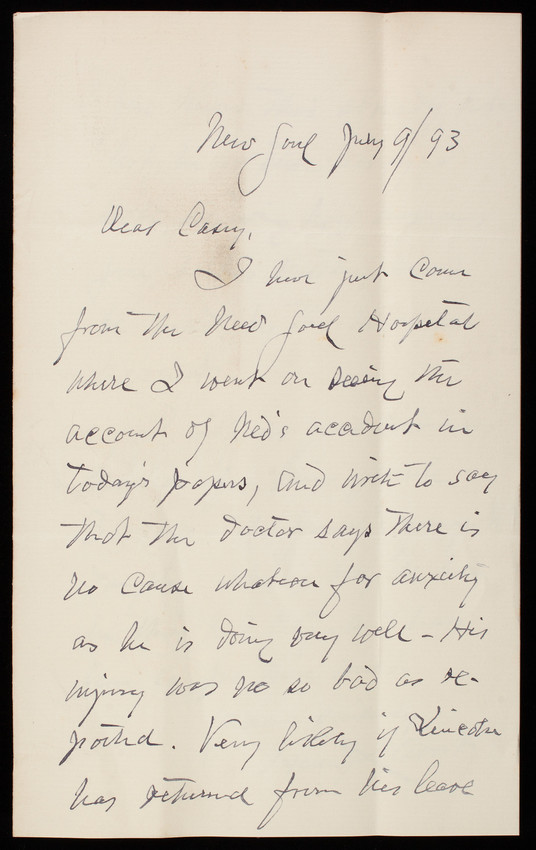 New York July 9/93
Dear Casey,
I have just come
from the New York Hospital
where I went on seeing the
account of Ned's accident in
today's papers, and write to say
that the doctor says there is
no cause whatever for anxiety
as he is doing very well - His
injury was no so bad as re-
ported. Very likely if Lincoln
has returned from his leave